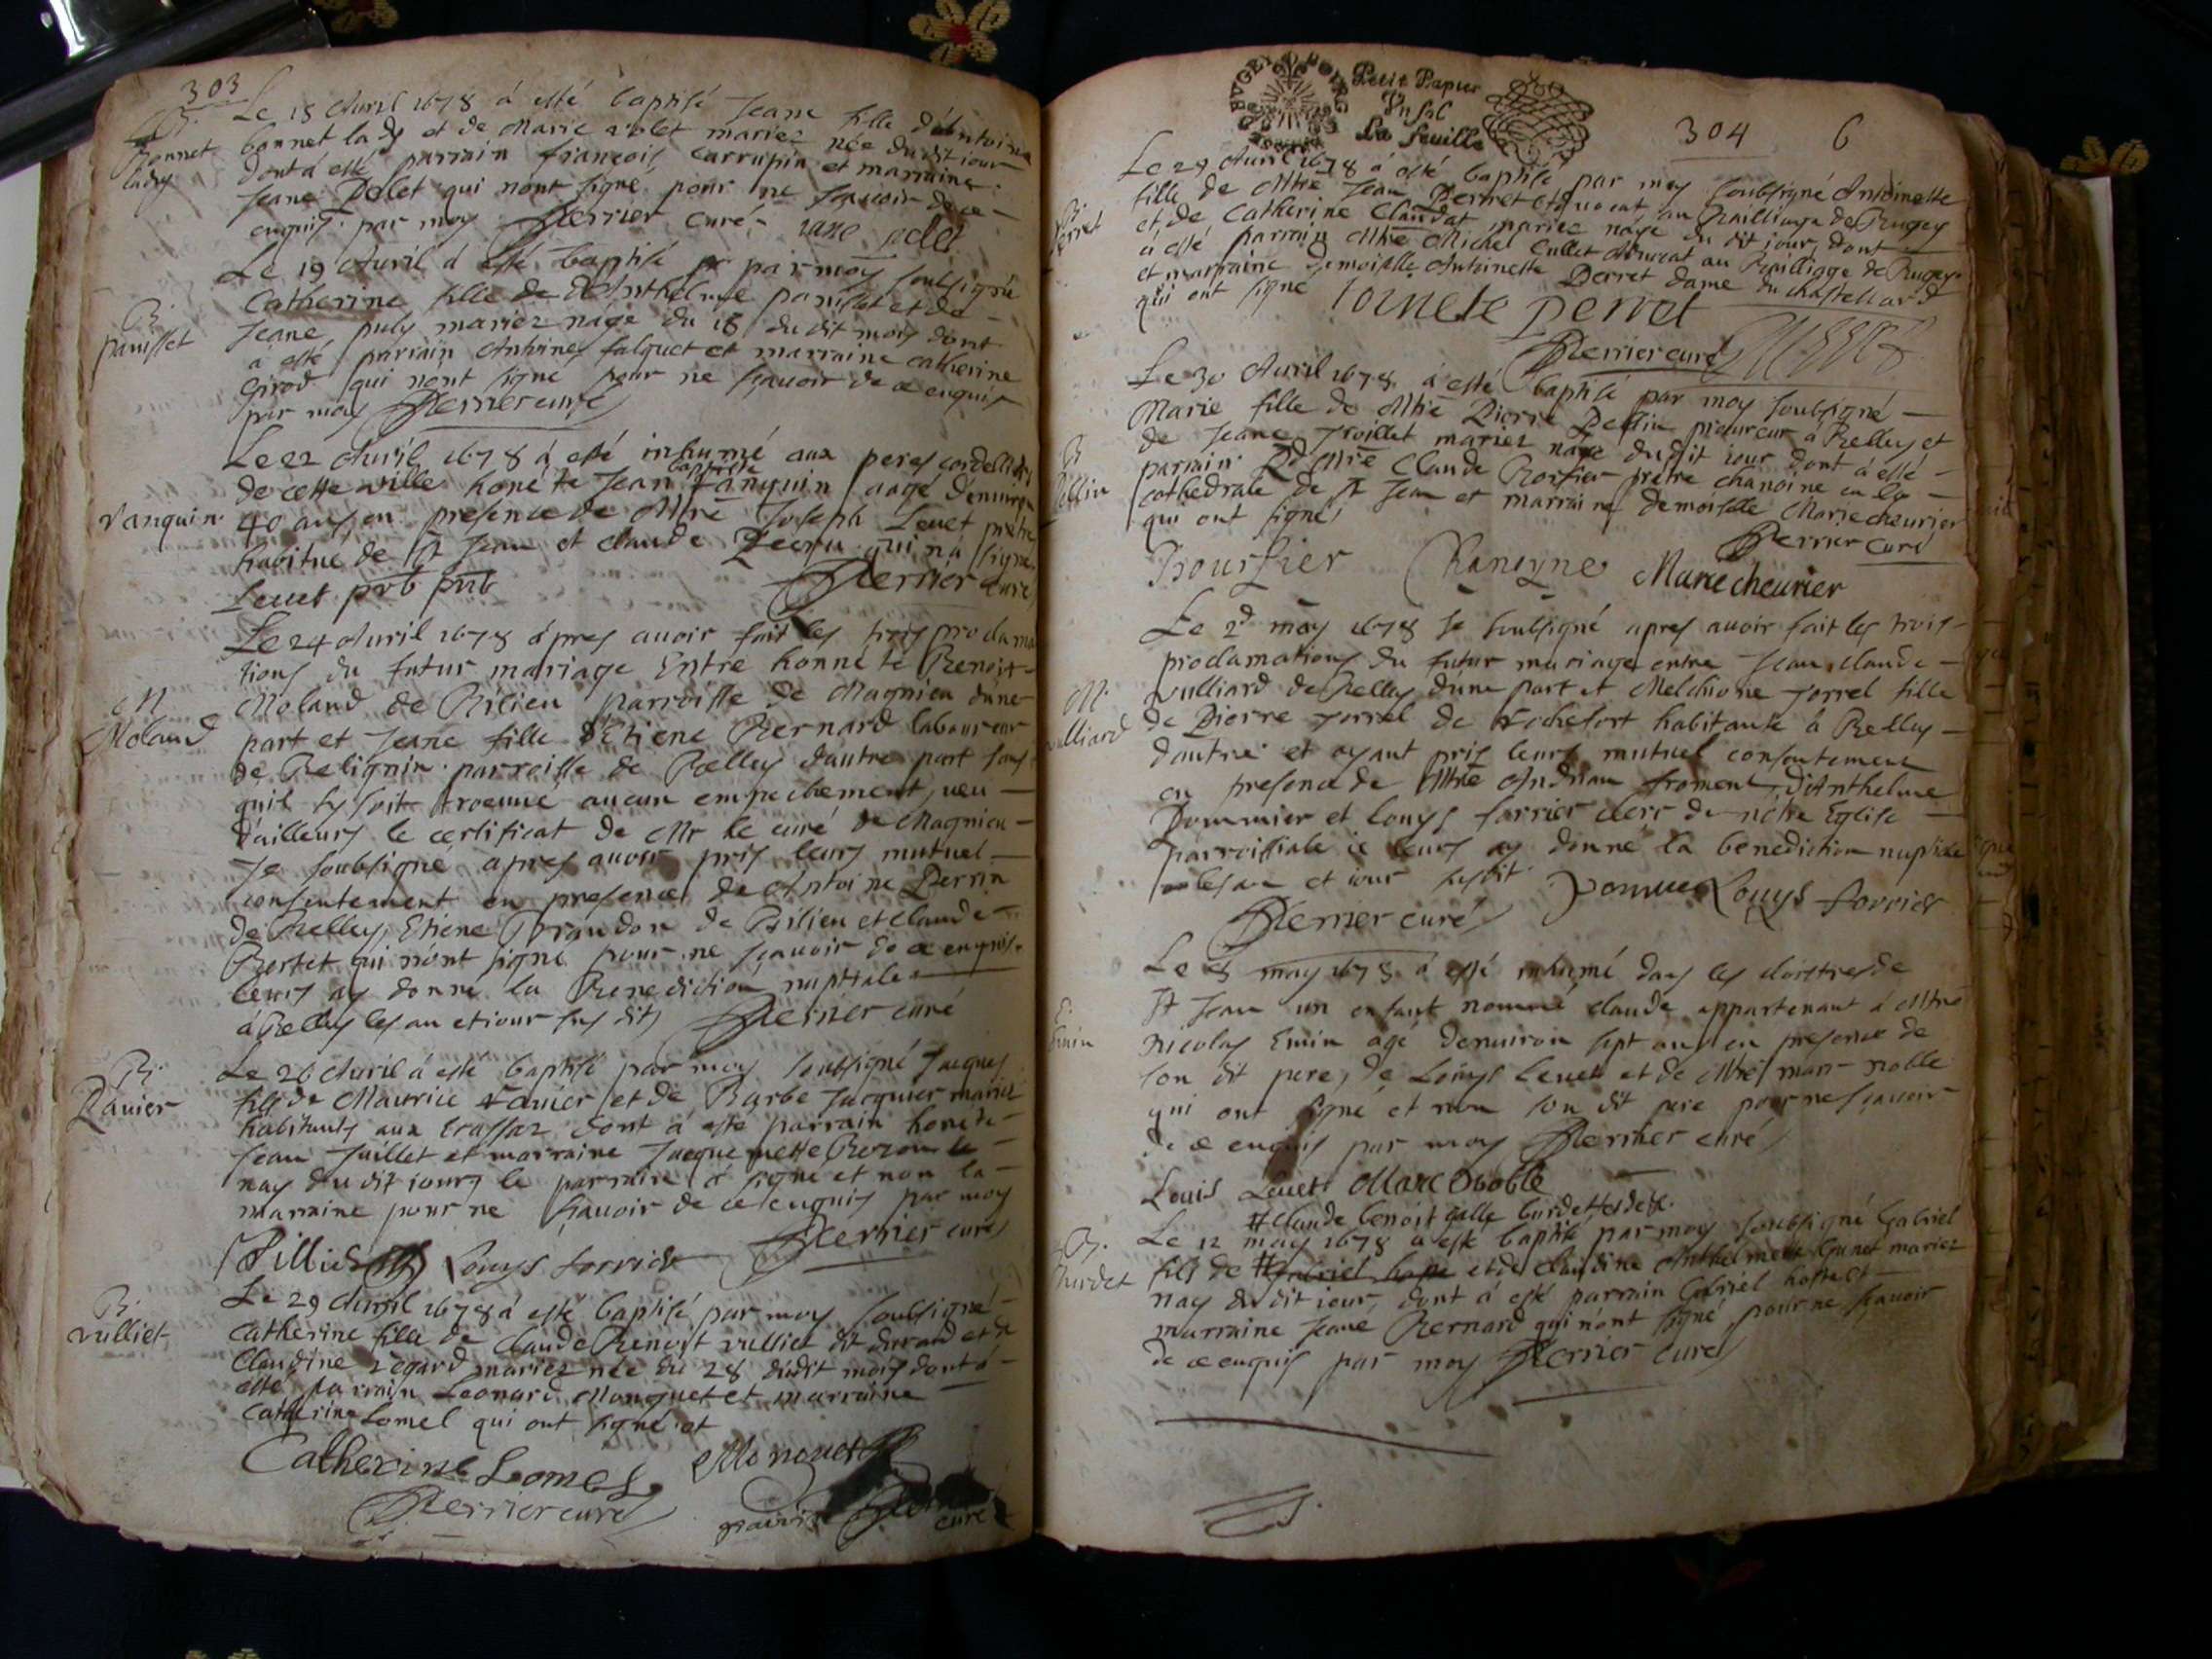 303
B.
Bonnet
ladÿ
Le 18 Auril 1678 á esté baptisé Jeane fille d'Antoine
bonnet ladÿ et de Marie volet mariez née dudit iour
dont á esté parrain françois Carrupin et marraine
Jeane Polet qui nont signé pour ne scauoir de ce
enquis par moy Perrier curé iane polet
B.
panisset
Le 19 Auril á esté baptisé par moy soubsigné
Catherine fille de Anthelme panisset et de
Jeane puly mariez nage du 18 du dit mois dont
á esté parrain Anthoine falquet et marraine catherine
Girod qui nont signé pour ne scauoir de ce enquis
par moy Perrier curé
vanquin
Le 22 Auril 1678 á esté inhumé aux peres cordelliers
de cette ville honéte Jean baptiste vanquin aagé d'enuiron
40 ans en presence de Mtre Joseph Leuet prétre
habitué de St Jean et claude Pecru qui n'a signé
Leuet pbr pnt Perrier Curé
M
Moland
Le 24 Auril 1678 ápres auoir fait les trois proclama
tions du futur mariage Entre honnéte Benoit
Moland de Bilieu parroisse de Magnieu dune
part et Jeane fille d'Etiene Bernard laboureur
de Belignin parroisse de Belley dautre part sans
quil sy soit treuué aucun empechement, ueu
d'ailleurs le certificat de Mr le curé de Magnieu
Je soubsigné apres auoir pris leurs mutuel
consentement en presence de Antoine Perrin
de Belley, Etiene Brandon de Bilieu et claude
Bertet qui nont signé pour ne scauoir de ce enquis
leurs ay donné la Benediction nuptiale
á Belley les an et iour sus dit Perrier curé
B.
Ravier
Le 26 Auril á esté baptisé par moy soubsigné Jacques
fils de Maurice ravier et de Barbe Jacquier mariez
habitants aux Erassaz dont á esté parrain honéte
Jean Juillet et marraine Jacquemette
nay du dit iour, le parrain á signé et non la
marraine pour ne scauoir de ce enquis par moy
Louys forrier Perrier curé
B.
vulliet
Le 29 Auril 1678 á esté baptisé par moy soubsigné
Catherine fille de Claude Benoist vulliet dit durand et de
Claudine regard mariez née du 28 dudit mois dont á
esté parrain Leonard Monquet et marraine
Catherine Lomel qui ont signé et
Catherine Lomel Monquet
Perrier curé parrin curé
BVGEY
Petit Papier
Vn sol
La feuille
304 6
B.
perret
Le 29 Auril 1678 á esté baptisé par moy soubsigné Antoinette
fille de Mtre Jean Perret Aduocat au Bailliage de Bugey
et de Catherine Claudat mariez nage du dit jour, dont
á esté parrain Mtre Michel Cullet Aduocat au Bailliage de Bugey
et marraine demoiselle Antoinette Perret dame du chastellard
qui ont signé Toinete perret
Perrier curé
B
Peillin
Le 30 Auril 1678 á esté baptisé par moy soubsigné
Marie fille de Mtre Pierre procureur á Belley et
de Jeane Troillet mariez nage dudit iour dont á esté
parrain Rd Mre Claude prétre chanoine en la
cathedrale de St Jean et marraine demoiselle Marie cheurier
qui ont signé Perrier Curé
Boursier Chanoyne Marie cheurier
M.
vulliard
Le 2d may 1678 Je soubsigné apres auoir fait les trois
proclamations du futur mariage entre Jean claude
vulliard de Belley d'une part et Melchione Jorrel fille
de Pierre Jorrel de rochefort habitante á Belley
dautre et ayant pris leurs mutuel consentement
en presence de Mtre Andrian froment, d'Anthelme
Pommier et Louys forrier clerc de nótre Eglise
parroissiale ie leurs ay donné la benediction nuptiale
les an et iour susdit Louys forrier
Perrier curé
E.
Emin
Le 8 may 1678 á esté inhumé dans les cloistres de
St Jean un enfant nommé claude appartenant á Mtre
Nicolas Emin agé denuiron sept ans en presence de
son dit pere, de Louys Leuet et de Mtre marc noble
qui ont signé et non son dit pere pour ne scauoir
de ce enquis par moy Perrier curé
Louis Leuet Marc Noble
# Claude benoit galle burdet
B.
Burdet
Le 12 may 1678 á esté baptisé par moy soubsigné Gabriel
fils de # et de claudine Anthelmette mariez
nay du dit iour, dont á esté parrain Gabriel
marraine Jeane Bernard qui nont signé pour ne scauoir
de ce enquis par moy Perrier curé